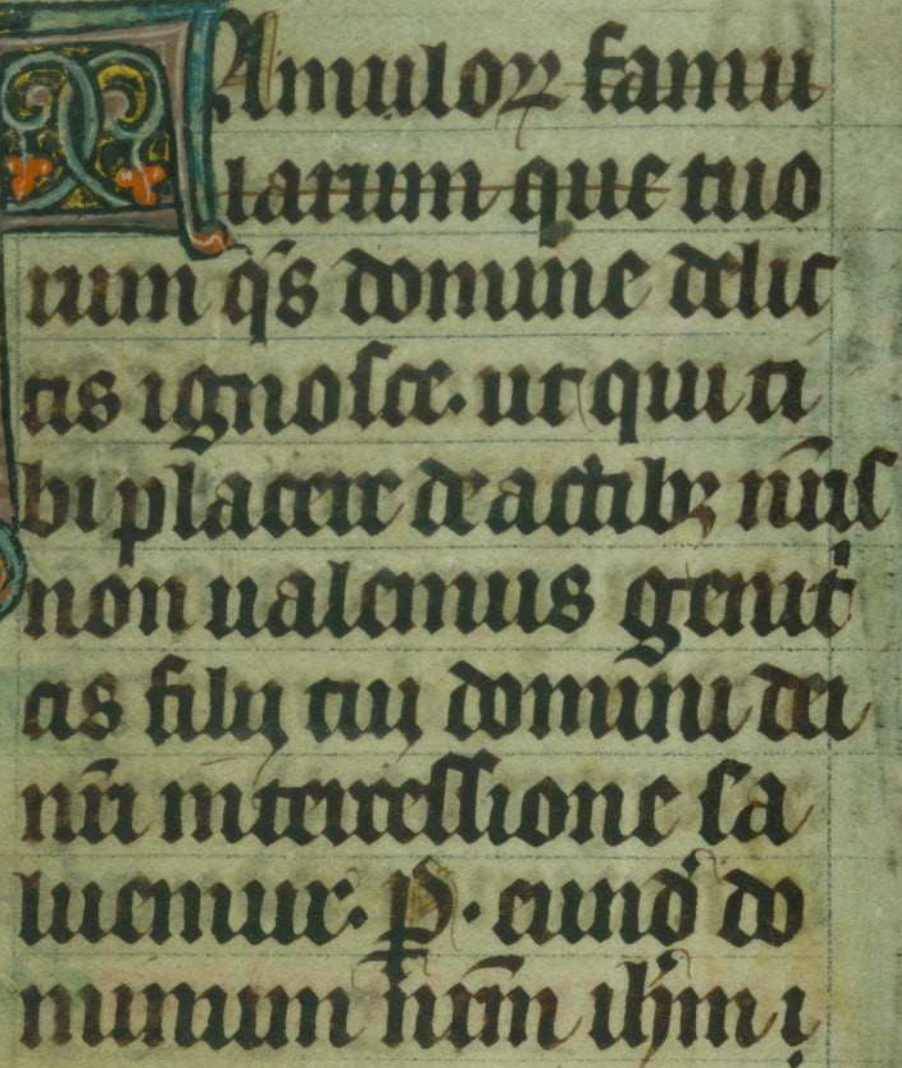 FAmuloꝝ famu
larum que tuo
rum q̄s domine delic
tis ignosce. ut qui ti
bi placere de actibꝫ nr̄is
non ualemus genitͥ
cis filij tui domini dei
nr̄i intercessione sa
luemur. P̶. eund̕ do
minum nr̄m ih̄m i